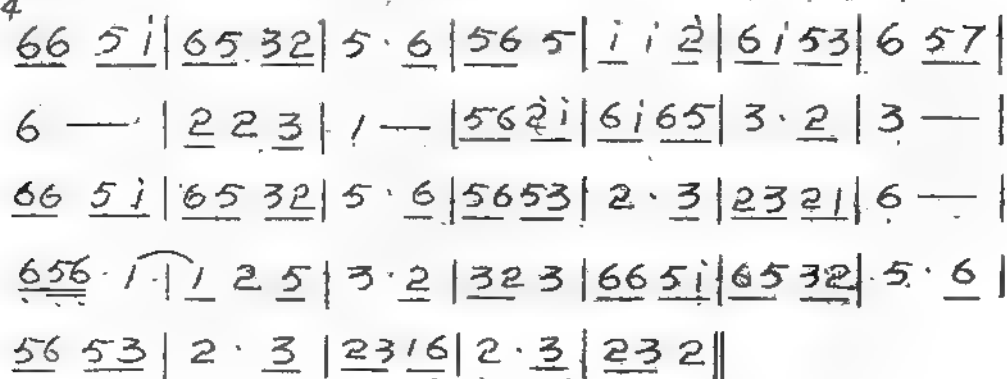 4
66 5i | 65 32 | 5 · 6 | 56 5 | i i 2̇ | 6i 53 | 6 57 |
6 — | 2 2 3 | 1 — | 56 2̇i | 6i 65 | 3 · 2 | 3 — |
66 5i | 65 32 | 5 · 6 | 56 53 | 2 · 3 | 23 21 | 6 — |
656 · 1 · | 1 2 5 | 3 · 2 | 32 3 | 66 5i | 65 32 | 5 · 6 |
56 53 | 2 · 3 | 23 16 | 2 · 3 | 23 2 ‖